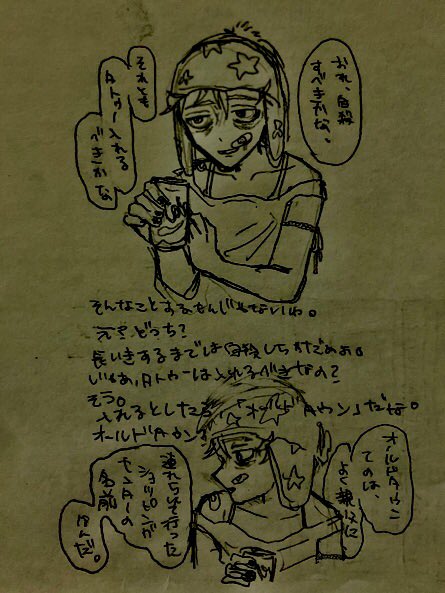 おれ、自殺
すべきかな、
それとも
タトゥー入れる
べきかな
そんなことするもんじゃないわ。
え?どっち?
長いきするまでは自殺しちゃだめよ。
じゃあ、タトゥーは入れるべきなの?
そう。
入れるとしたら、「オールドタウン」だな。
オールドタウン?
オールドタウン
てのは、
よく親父に
連れられて行った
ショッピング
センターの
名前
なんだ。